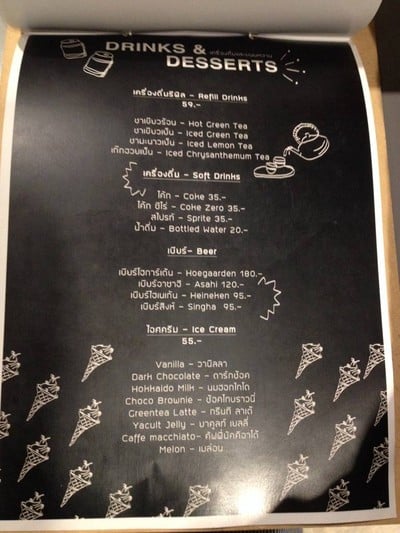 DRINKS &
เครื่องดื่มและของหวาน
DESSERTS
เครื่องดื่มรีฟิล - Refill Drinks
59.-
ชาเขียวร้อน - Hot Green Tea
ชาเขียวเย็น - Iced Green Tea
ชามะนาวเย็น - Iced Lemon Tea
เก๊กฮวยเย็น - Iced Chrysanthemum Tea
เครื่องดื่ม - Soft Drinks
โค้ก - Coke 35.-
โค้ก ซีโร่ - Coke Zero 35.-
สไปรท์ - Sprite 35.-
น้ำดื่ม - Bottled Water 20.-
เบียร์- Beer
เบียร์โฮการ์เด้น - Hoegaarden 180.-
เบียร์อาซาฮี - Asahi 120.-
เบียร์ไฮเนเก้น - Heineken 95.-
เบียร์สิงห์ - Singha 95.-
ไอศครีม - Ice Cream
55.-
Vanilla - วานิลลา
Dark Chocolate - ดาร์กช็อค
Hokkaido Milk - นมฮอกไกโด
Choco Brownie - ช้อคโกบราวนี่
Greentea Latte - กรีนที ลาเต้
Yacult Jelly - ยาคูลท์ เยลลี่
Caffe macchiato- คัฟฟี่มัคคิอาโต้
Melon - เมล่อน